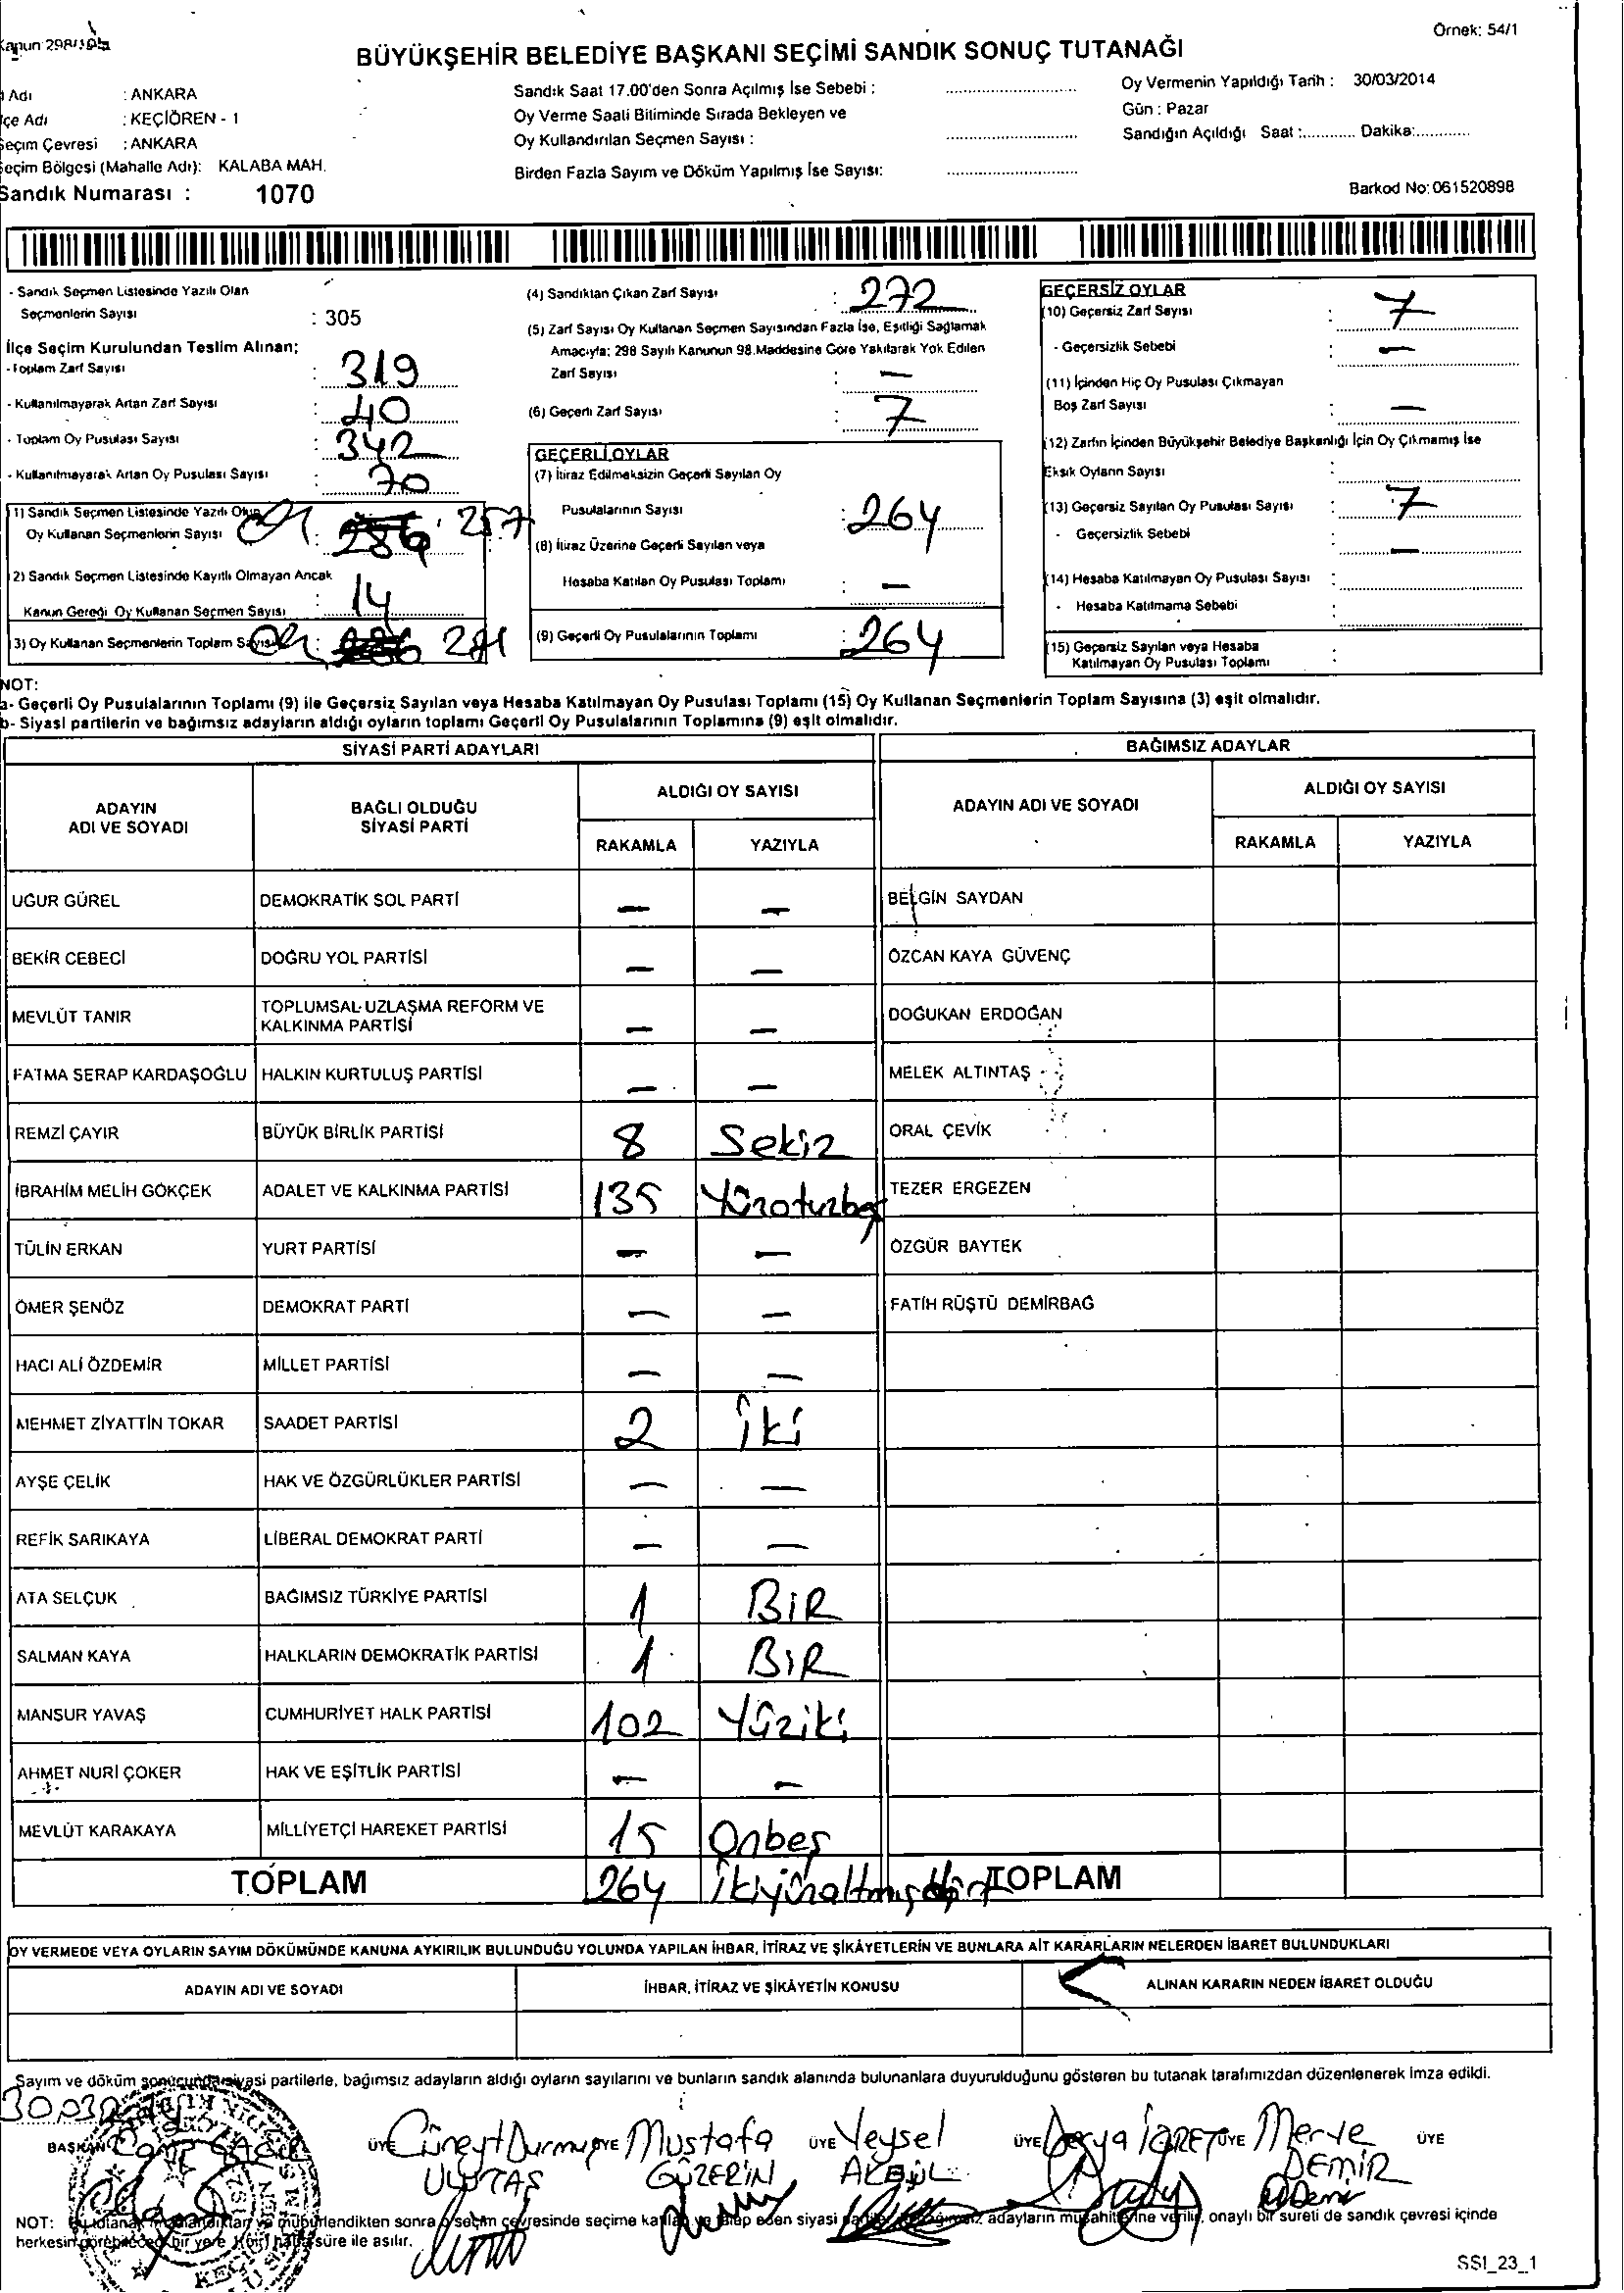 Örnek: 54/1
BÜYÜKŞEHİR BELEDİYE BAŞKANI SEÇİMİ SANDIK SONUÇ TUTANAĞI
Adı : ANKARA
çe Adı : KEÇİÖREN - 1
Seçim Çevresi : ANKARA
eçim Bölgesi (Mahalle Adı): KALABA MAH.
Sandık Numarası : 1070
Sandık Saat 17.00'den Sonra Açılmış İse Sebebi :
Oy Verme Saati Bitiminde Sırada Bekleyen ve
Oy Kullandırılan Seçmen Sayısı :
Birden Fazla Sayım ve Döküm Yapılmış İse Sayısı:
Oy Vermenin Yapıldığı Tarih : 30/03/2014
Gün : Pazar
Sandığın Açıldığı Saat :............ Dakika:...........
Barkod No: 061520898
- Sandık Seçmen Listesinde Yazılı Olan
Seçmenlerin Sayısı : 305
İlçe Seçim Kurulundan Teslim Alınan;
- Toplam Zarf Sayısı : 319
- Kullanılmayarak Artan Zarf Sayısı : 40
- Toplam Oy Pusulası Sayısı : 342
- Kullanılmayarak Artan Oy Pusulası Sayısı : 70
1) Sandık Seçmen Listesinde Yazılı Olup
Oy Kullanan Seçmenlerin Sayısı : 257
2) Sandık Seçmen Listesinde Kayıtlı Olmayan Ancak
Kanun Gereği Oy Kullanan Seçmen Sayısı : 14
3) Oy Kullanan Seçmenlerin Toplam Sayısı : 271
(4) Sandıktan Çıkan Zarf Sayısı : 272
(5) Zarf Sayısı Oy Kullanan Seçmen Sayısından Fazla İse, Eşitliği Sağlamak
Amacıyla; 298 Sayılı Kanunun 98.Maddesine Göre Yakılarak Yok Edilen
Zarf Sayısı : —
(6) Geçerli Zarf Sayısı : 7
GEÇERLİ OYLAR
(7) İtiraz Edilmeksizin Geçerli Sayılan Oy
Pusulalarının Sayısı : 264
(8) İtiraz Üzerine Geçerli Sayılan veya
Hesaba Katılan Oy Pusulası Toplamı : —
(9) Geçerli Oy Pusulalarının Toplamı : 264
GEÇERSİZ OYLAR
(10) Geçersiz Zarf Sayısı : 7
- Geçersizlik Sebebi : —
(11) İçinden Hiç Oy Pusulası Çıkmayan
Boş Zarf Sayısı : —
(12) Zarfın İçinden Büyükşehir Belediye Başkanlığı İçin Oy Çıkmamış İse
Eksik Oyların Sayısı :
(13) Geçersiz Sayılan Oy Pusulası Sayısı : 7
- Geçersizlik Sebebi : —
(14) Hesaba Katılmayan Oy Pusulası Sayısı :
- Hesaba Katılmama Sebebi :
(15) Geçersiz Sayılan veya Hesaba
Katılmayan Oy Pusulası Toplamı :
NOT:
a- Geçerli Oy Pusulalarının Toplamı (9) ile Geçersiz Sayılan veya Hesaba Katılmayan Oy Pusulası Toplamı (15) Oy Kullanan Seçmenlerin Toplam Sayısına (3) eşit olmalıdır.
b- Siyasi partilerin ve bağımsız adayların aldığı oyların toplamı Geçerli Oy Pusulalarının Toplamına (9) eşit olmalıdır.
SİYASİ PARTİ ADAYLARI BAĞIMSIZ ADAYLAR
ADAYIN ADI VE SOYADI BAĞLI OLDUĞU SİYASİ PARTİ ALDIĞI OY SAYISI ADAYIN ADI VE SOYADI ALDIĞI OY SAYISI
RAKAMLA YAZIYLA RAKAMLA YAZIYLA
UĞUR GÜREL DEMOKRATİK SOL PARTİ — — BELGİN SAYDAN
BEKİR CEBECİ DOĞRU YOL PARTİSİ — — ÖZCAN KAYA GÜVENÇ
MEVLÜT TANIR TOPLUMSAL UZLAŞMA REFORM VE KALKINMA PARTİSİ — — DOĞUKAN ERDOĞAN
FATMA SERAP KARDAŞOĞLU HALKIN KURTULUŞ PARTİSİ — — MELEK ALTINTAŞ
REMZİ ÇAYIR BÜYÜK BİRLİK PARTİSİ 8 Sekiz ORAL ÇEVİK
İBRAHİM MELİH GÖKÇEK ADALET VE KALKINMA PARTİSİ 135 Yüzotuzbeş TEZER ERGEZEN
TÜLİN ERKAN YURT PARTİSİ — — ÖZGÜR BAYTEK
ÖMER ŞENÖZ DEMOKRAT PARTİ — — FATİH RÜŞTÜ DEMİRBAĞ
HACI ALİ ÖZDEMİR MİLLET PARTİSİ — —
MEHMET ZİYATTİN TOKAR SAADET PARTİSİ 2 İki
AYŞE ÇELİK HAK VE ÖZGÜRLÜKLER PARTİSİ — —
REFİK SARIKAYA LİBERAL DEMOKRAT PARTİ — —
ATA SELÇUK BAĞIMSIZ TÜRKİYE PARTİSİ 1 BİR
SALMAN KAYA HALKLARIN DEMOKRATİK PARTİSİ 1 BIR
MANSUR YAVAŞ CUMHURİYET HALK PARTİSİ 102 Yüziki
AHMET NURİ ÇOKER HAK VE EŞİTLİK PARTİSİ — —
MEVLÜT KARAKAYA MİLLİYETÇİ HAREKET PARTİSİ 15 Onbeş
TOPLAM 264 İkiyüzaltmışdört TOPLAM
OY VERMEDE VEYA OYLARIN SAYIM DÖKÜMÜNDE KANUNA AYKIRILIK BULUNDUĞU YOLUNDA YAPILAN İHBAR, İTİRAZ VE ŞİKÂYETLERİN VE BUNLARA AİT KARARLARIN NELERDEN İBARET BULUNDUKLARI
ADAYIN ADI VE SOYADI İHBAR, İTİRAZ VE ŞİKÂYETİN KONUSU ALINAN KARARIN NEDEN İBARET OLDUĞU
Sayım ve döküm sonucunda siyasi partilerle, bağımsız adayların aldığı oyların sayılarını ve bunların sandık alanında bulunanlara duyurulduğunu gösteren bu tutanak tarafımızdan düzenlenerek imza edildi.
BAŞKAN ÜYE Cüneyt Durmuş ÜYE Mustafa ÜYE Veysel ÜYE Derya ÜYE Merve ÜYE
ULUTAŞ GÜZERİN AKBÜL DEMİR
NOT: Bu tutanak sonra o seçim çevresinde seçime katılan ve talep eden siyasi adayların müşahitlerine verilir, onaylı bir sureti de sandık çevresi içinde
herkesin görebileceği bir yere 1(bir) hafta süre ile asılır.
SS1_23_1